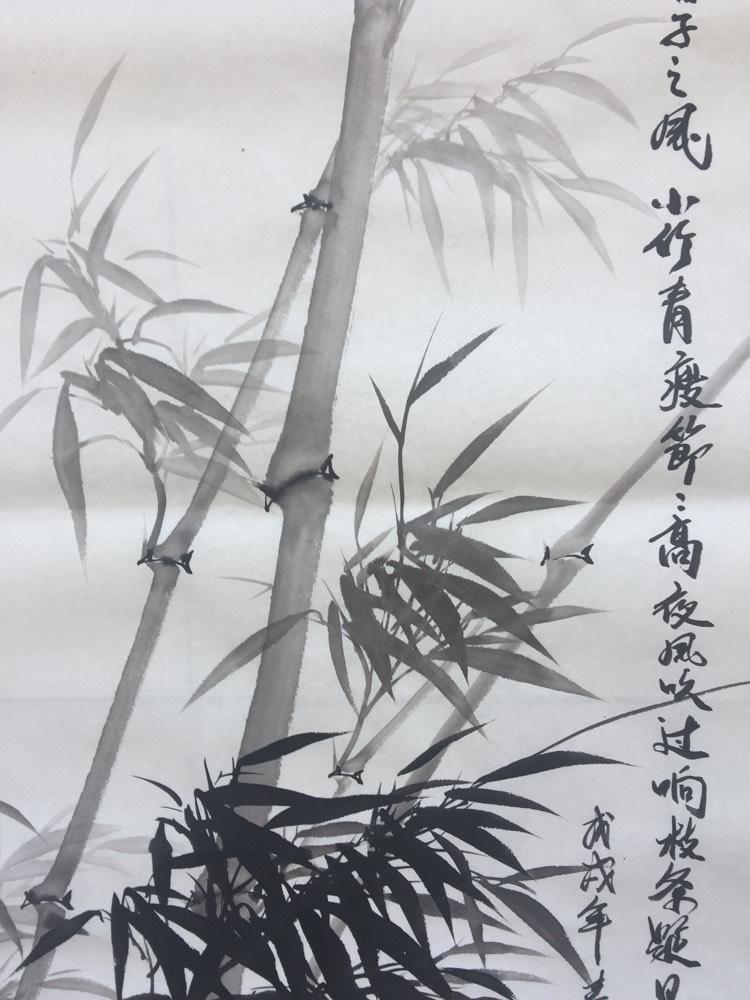 子之风 小竹青瘦節〻高夜风吹过响枝条疑
戊戌年